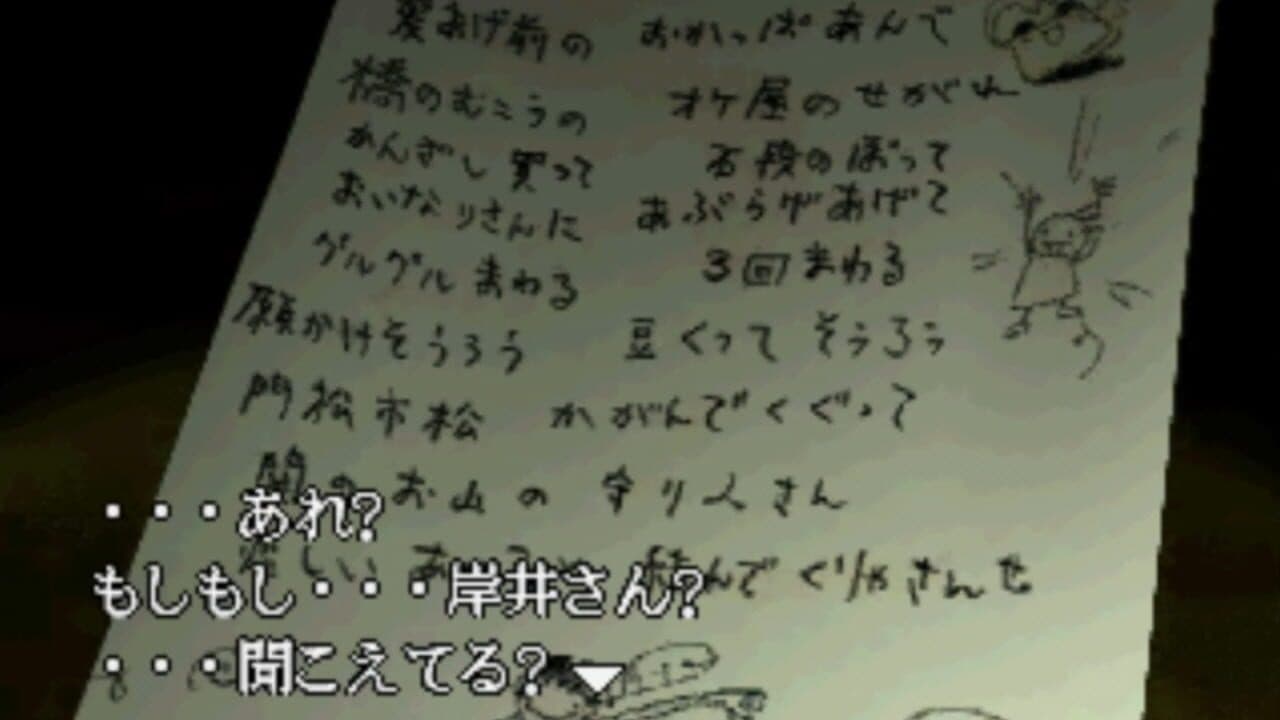 髪あげ前の おかっぱあんで
橋のむこうの オケ屋のせがれ
かんざし買って 石段のぼって
おいなりさんに あぶらげあげて
グルグルまわる 3回まわる
願かけそうろう 豆くってそうろう
門松市松 かがんでくぐって
お山の 守り人さん
しい んで ぐりゃさんせ
・・・あれ?
もしもし・・・岸井さん?
・・・聞こえてる?